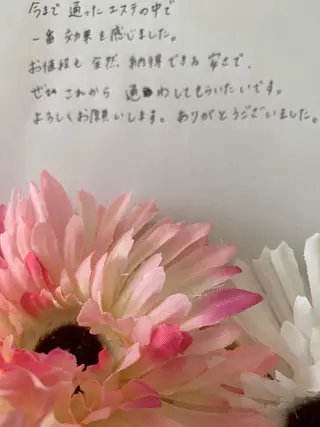 今まで通ったエステの中で
一番効果を感じました。
お値段も全然納得できる安さで、
ぜひこれから通わしてもらいたいです。
よろしくお願いします。ありがとうございました。